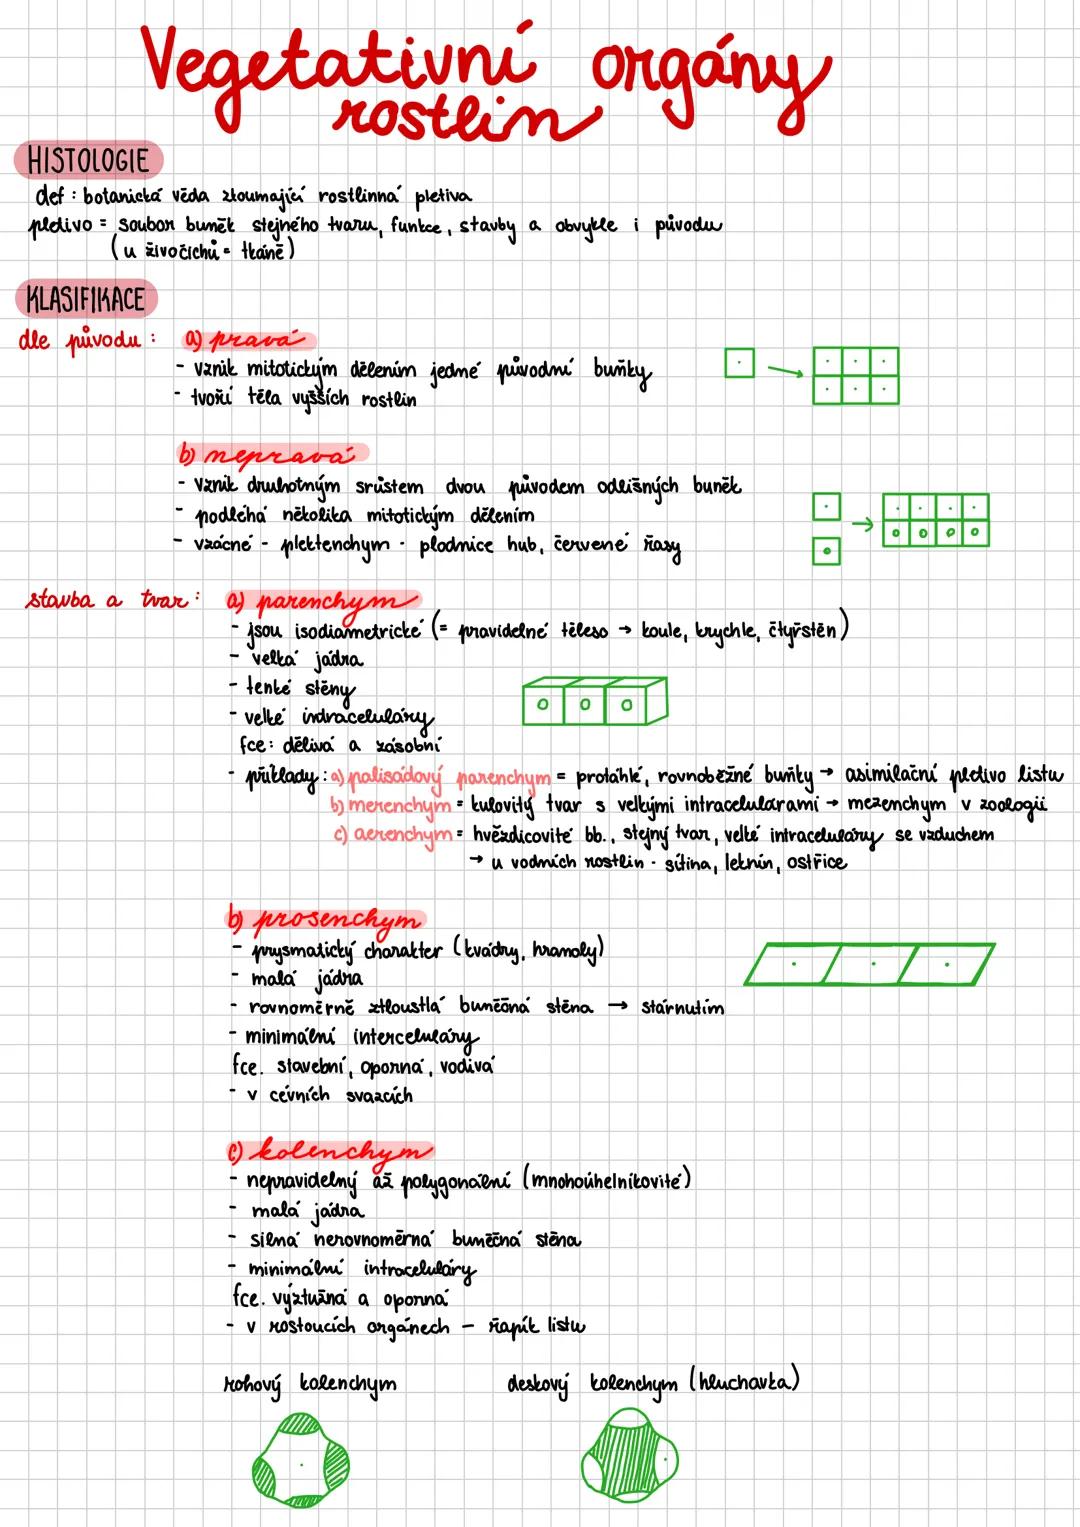 Vegetativní orgány
rostlin
HISTOLOGIE
def : botanická věda zkoumající rostlinná pletiva
pletivo = soubor buněk stejného tvaru, funkce, stavby a obvykle i původu
(u živočichů = tkáně)
KLASIFIKACE
dle původu : a) pravá
- vznik mitotickým dělením jedné původní buňky
- tvoří těla vyšších rostlin
b) nepravá
- vznik druhotným srůstem dvou původem odlišných buněk
- podléhá několika mitotickým dělením
- vzácné - plektenchym - plodnice hub, červené řasy
stavba a tvar : a) parenchym
- jsou isodiametrické (= pravidelné těleso → koule, krychle, čtyřstěn)
- velká jádra
- tenké stěny
- velké indraceluláry
fce: dělivá a zásobní
- příklady : a) palisádový parenchym = protáhlé, rovnoběžné buňky → asimilační pletivo listu
b) merenchym = kulovitý tvar s velkými intracelulárami → mezenchym v zoologii
c) aerenchym = hvězdicovité bb., stejný tvar, velké intraceluláry se vzduchem
→ u vodních rostlin - sítina, leknín, ostřice
b) prosenchym
- prysmatický charakter (kvádry, hranoly)
- malá jádra
- rovnoměrně ztloustlá buněčná stěna → stárnutím
- minimální interceluláry
fce. stavební, oporná, vodivá
- v cévních svazcích
c) kolenchym
- nepravidelný až polygonální (mnohoúhelníkovité)
- malá jádra
- silná nerovnoměrná buněčná stěna
- minimální intraceluláry
fce. výztužná a oporná
- v rostoucích orgánech - řapík listu
rohový kolenchym deskový kolenchym (hluchavka)